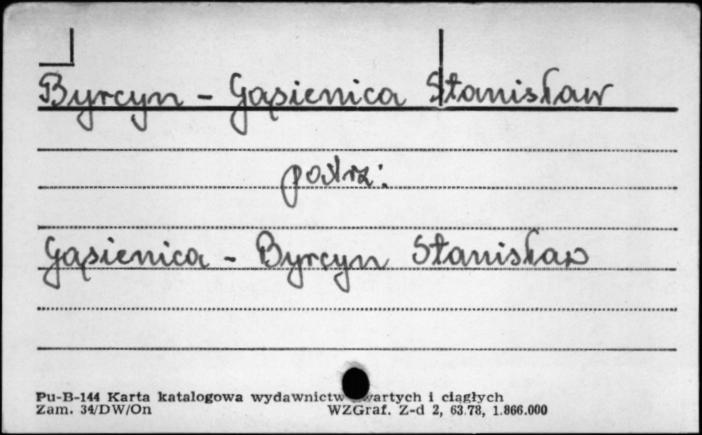 Byrcyn - Gąsienica Stanisław
patrz:
Gąsienica - Byrcyn Stanisław
Pu-B-144 Karta katalogowa wydawnictw zwartych i ciągłych
Zam. 34/DW/On WZGraf. Z-d 2, 63.78, 1.866.000